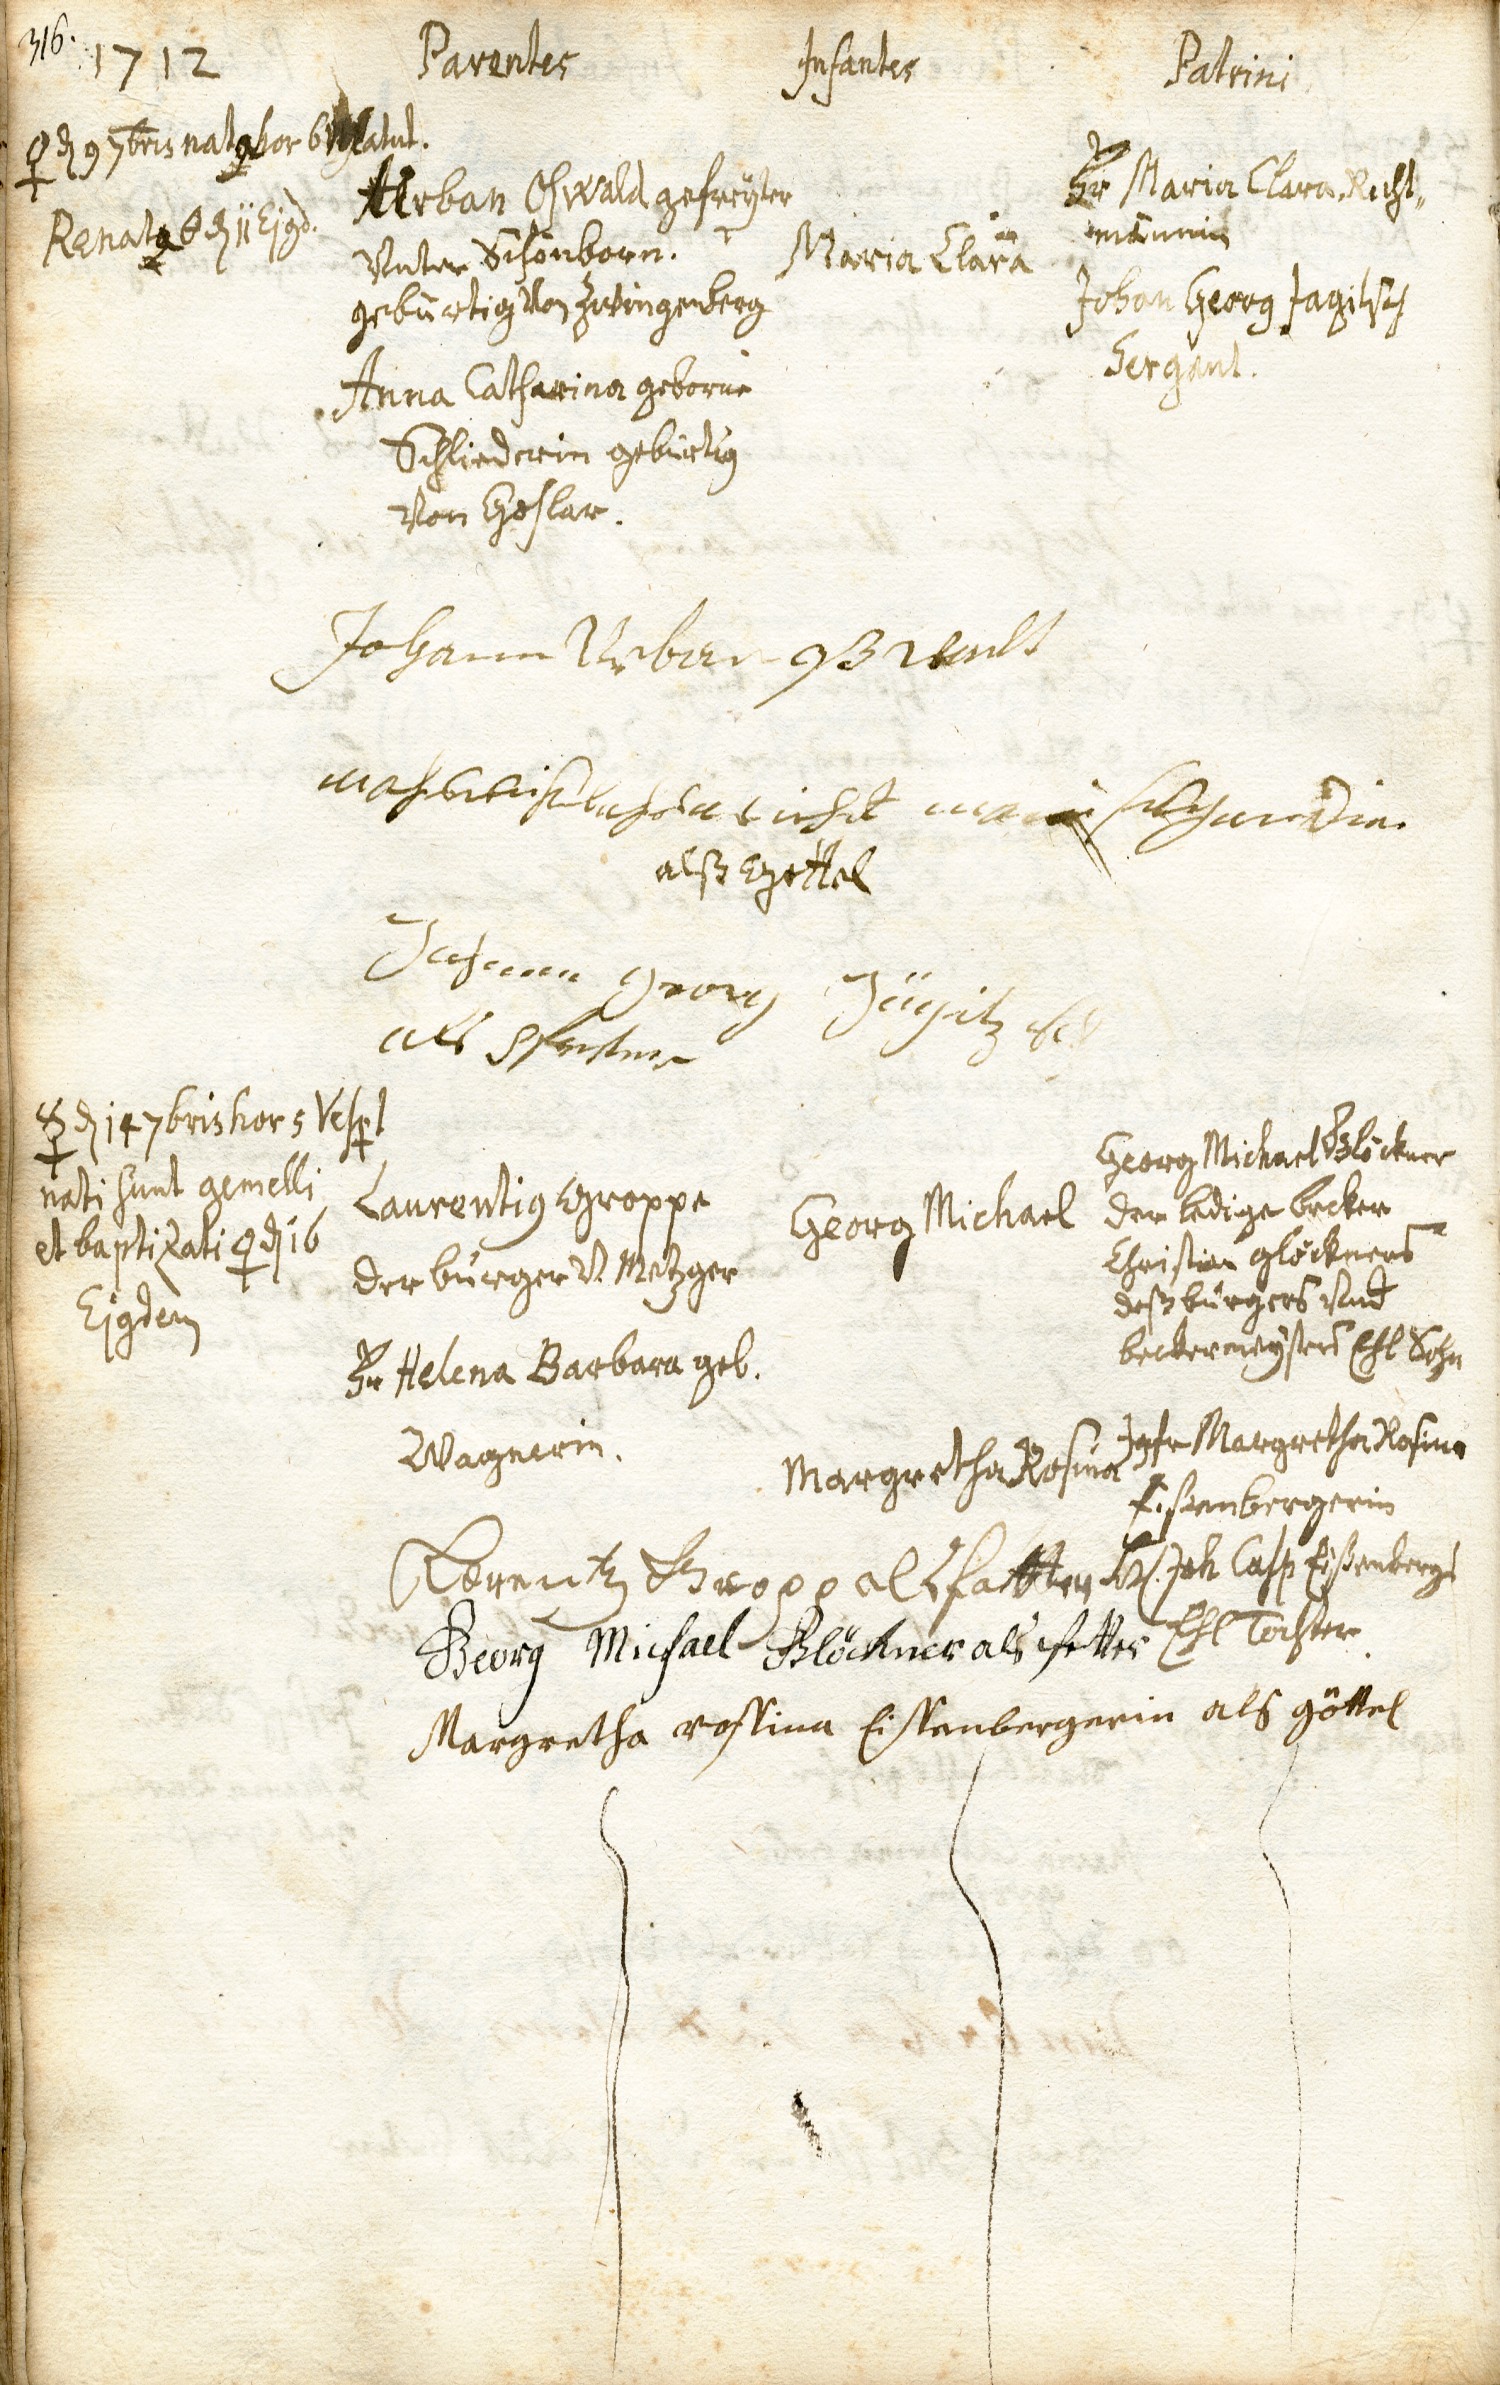 316.
1712
Parentes
Infantes
Patrini
♀ d 9 7bris nat9 hor 6 matut.
Renat9 d 11 Ejgd.
Urban Oswald gefreyter
Unter Schönborn.
gebürtig von Zwingenberg
Anna Catharina geborne
Schliederin gebürtig
von Goslar.
Maria Clara
Fr Maria Clara Richt„
männin
Johan Georg Jagitsch
Sergant.
Johann Urban
alß Göttel
Johann Georg
als
☿ d 14 7bris hor 5 Vespt
nati sunt gemelli
et baptizati ♀ d 16
Ejgdem
Laurenti9 Groppe
der bürger v. Metzger
Fr Helena Barbara geb.
Wagnerin.
Georg Michael
Margretha Rosina
Georg Michael Glöckner
der ledige becker
Christian glöckners
deß bürgers und
beckermeysters Ehl Sohn
Jgfr Margretha Rosina
Eissenbergerin
H. Joh Casp Eissenbergs
Ehl Tochter.
Lorentz Gropp als fatter
Georg Michael Glöckner als Petter
Margretha rossina Eissenbergerin als göttel